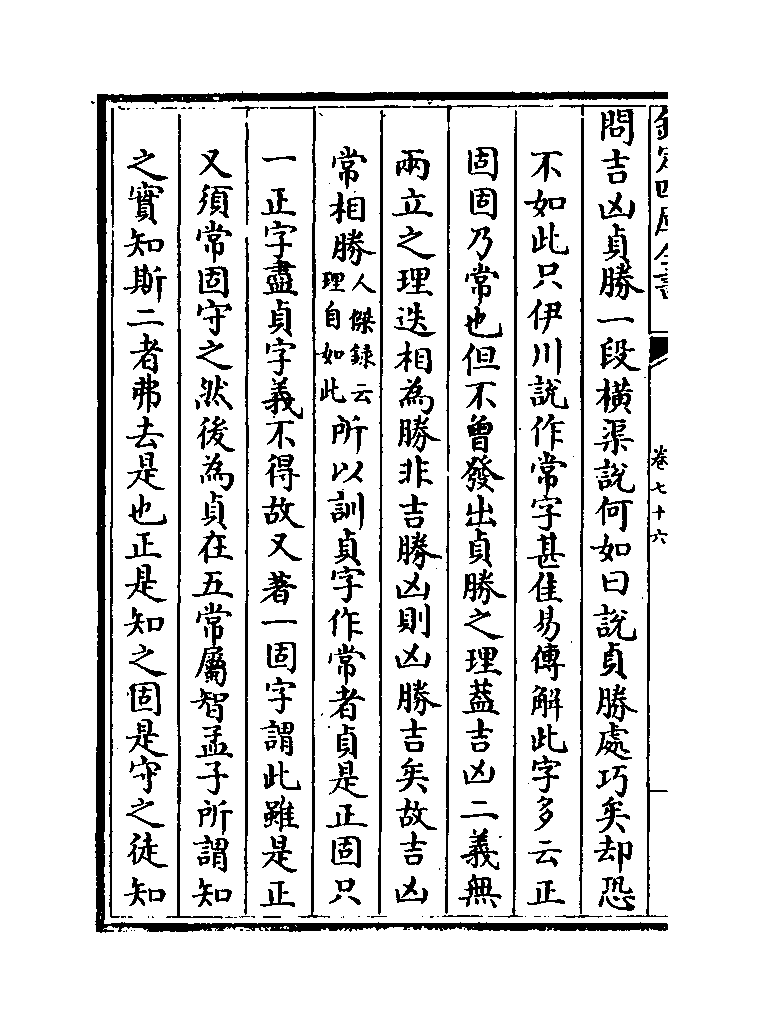 欽定四庫全書
卷七十六
問吉凶貞勝一段橫渠說何如曰說貞勝處巧矣却恐
不如此只伊川說作常字甚佳易傳解此字多云正
固固乃常也但不曾發出貞勝之理葢吉凶二義無
兩立之理迭相為勝非吉勝凶則凶勝吉矣故吉凶
常相勝人傑録云理自如此所以訓貞字作常者貞是正固只
一正字盡貞字義不得故又著一固字謂此雖是正
又須常固守之然後為貞在五常屬智孟子所謂知
之實知斯二者弗去是也正是知之固是守之徒知